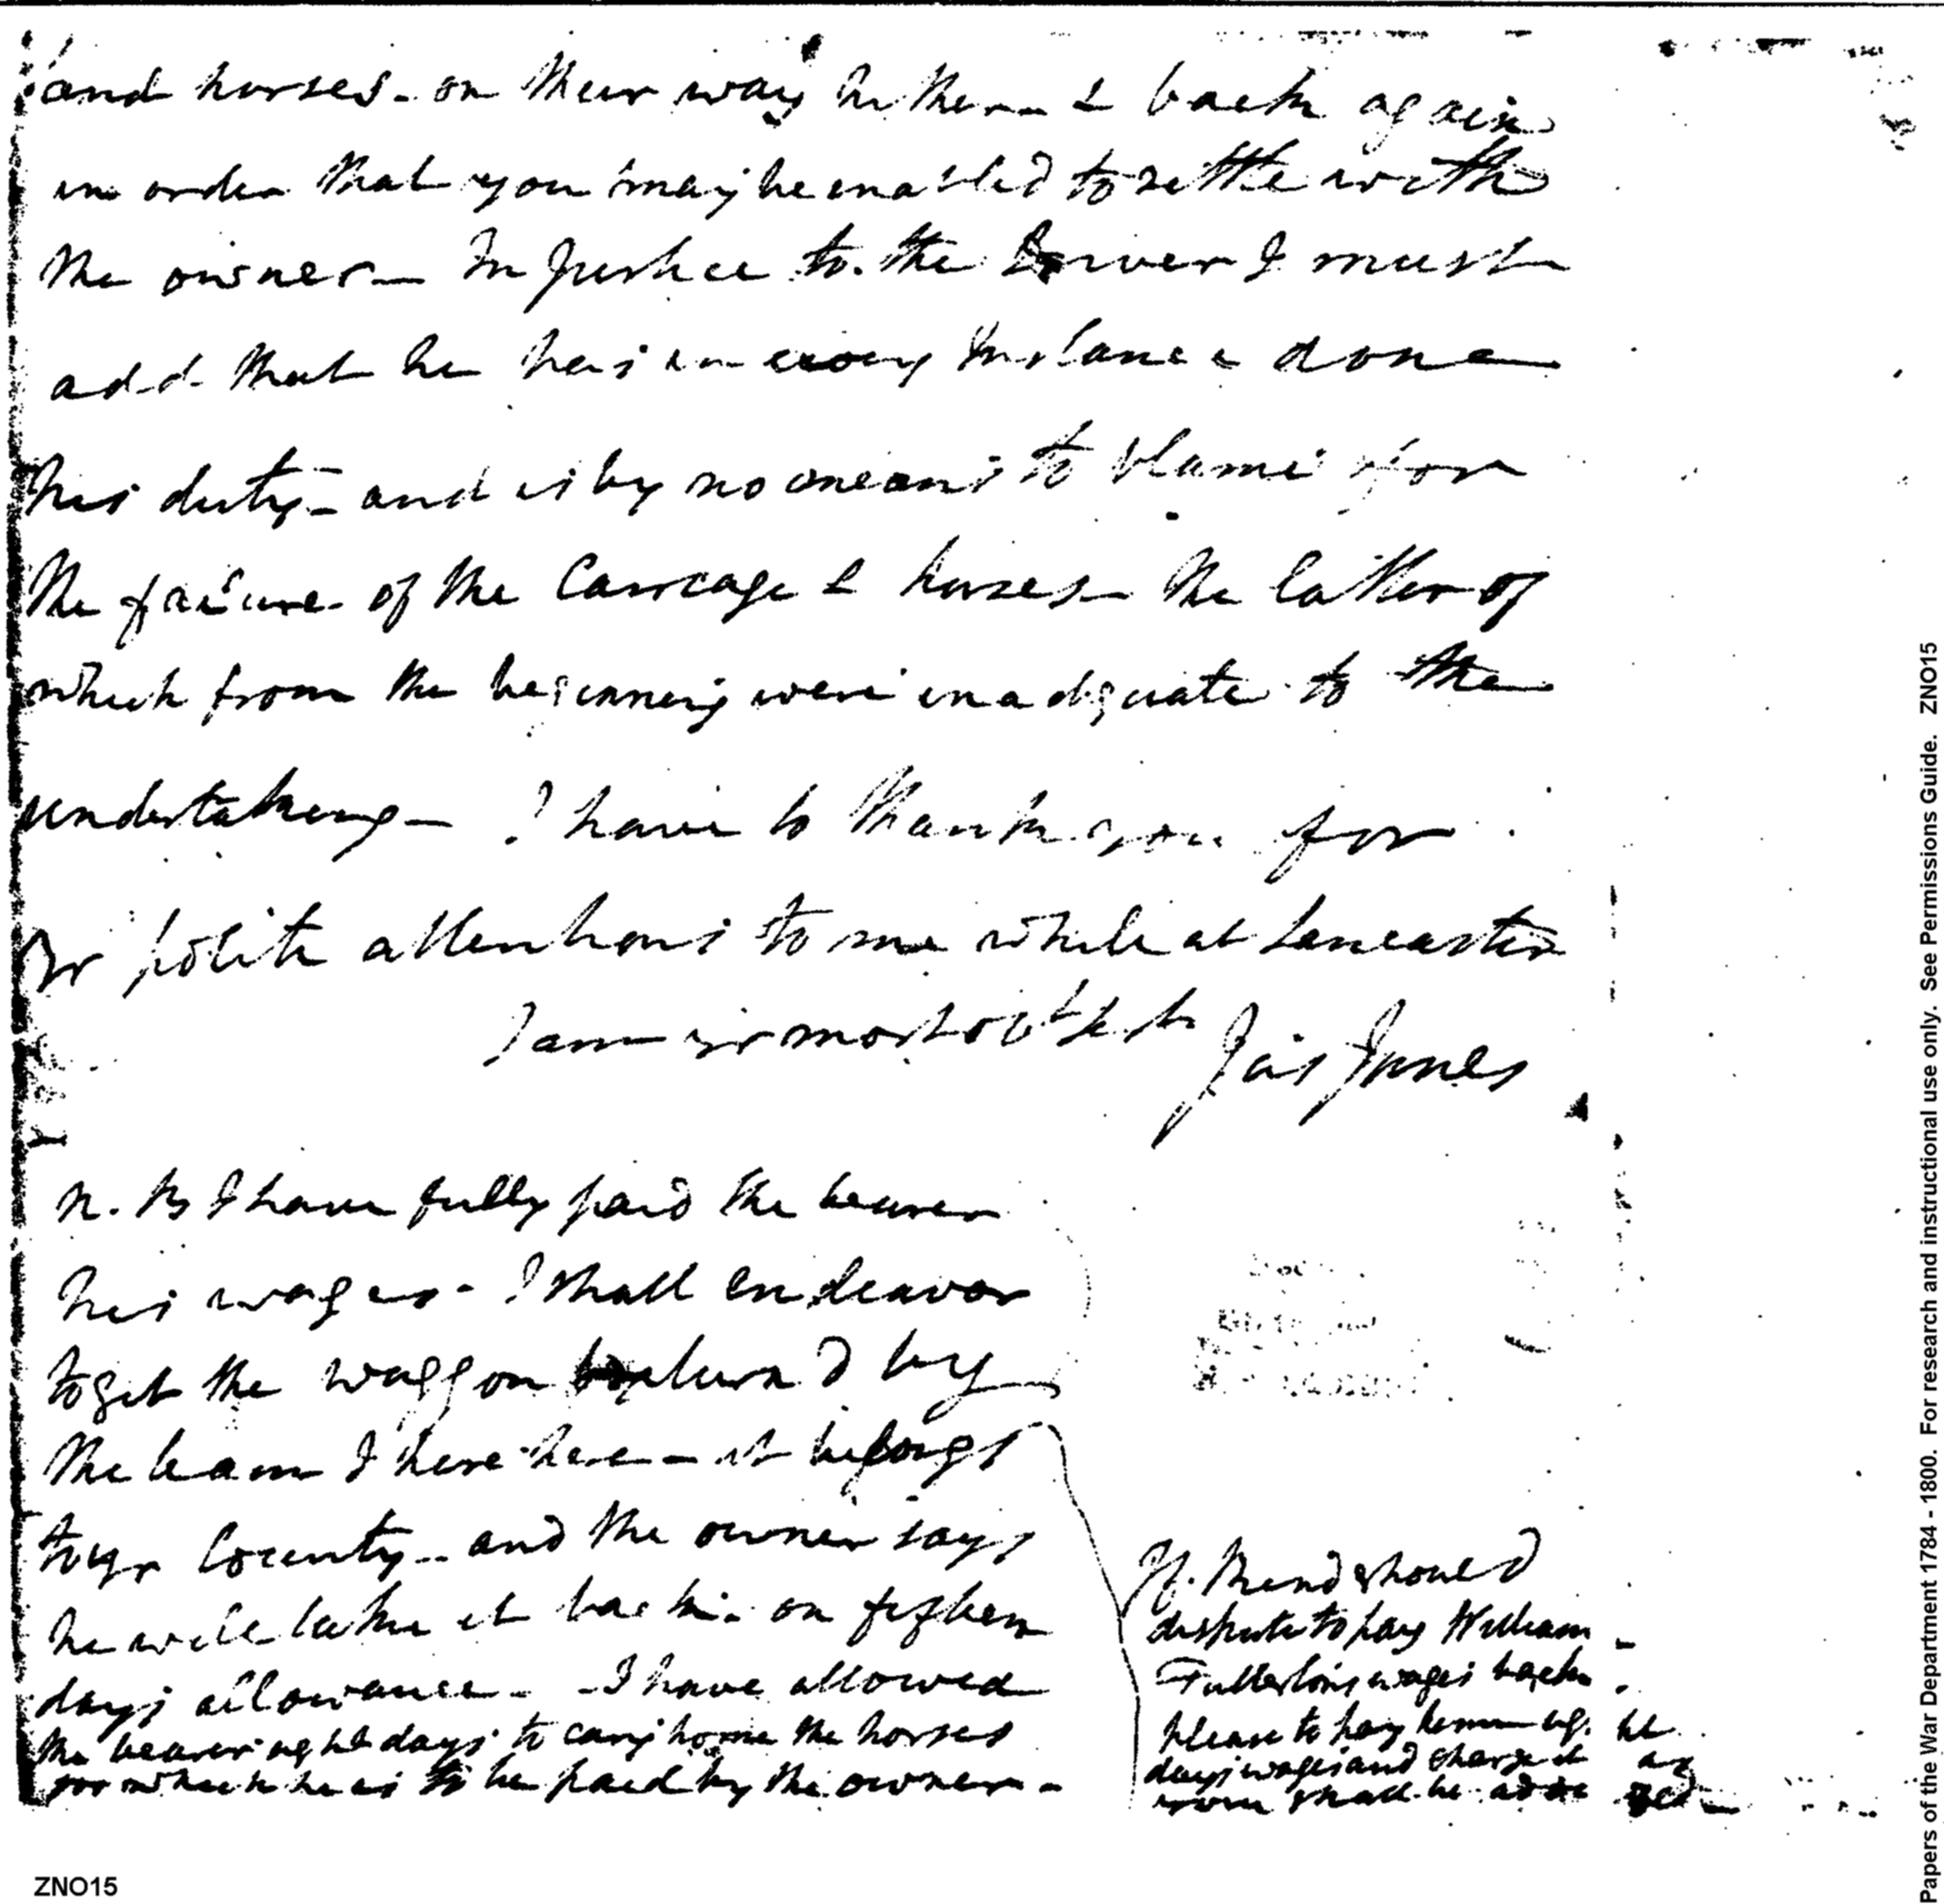 and horses - on their way hither & back again
in order that you may be enabled to settle with
the owner - In Justice to the Driver I must
add that he has in every Instance done
his duty - and is by no means to blame for
the failure of the Carriage & horses - the latter of
which from the beginning were inadequate to the
undertaking - I have to thank you for
yr polite attentions to me while at Lancaster
I am yr most obt St
Jas Jones
N. B I have fully paid the bearer
his wages - I shall endeavor
to get the waggon return'd by
the team I here - it belongs
to yr County - and the owner says
he will take it back on fifteen
days allowance - I have allowed
the bearer eight days to carry home the horses
for which he is to be paid by the owner -
If should
dispute to pay William
Fullerton's wages back
please to pay him
days wages and charge it
shall be
ZNO15
Papers of the War Department 1784 - 1800. For research and instructional use only. See Permissions Guide. ZNO15